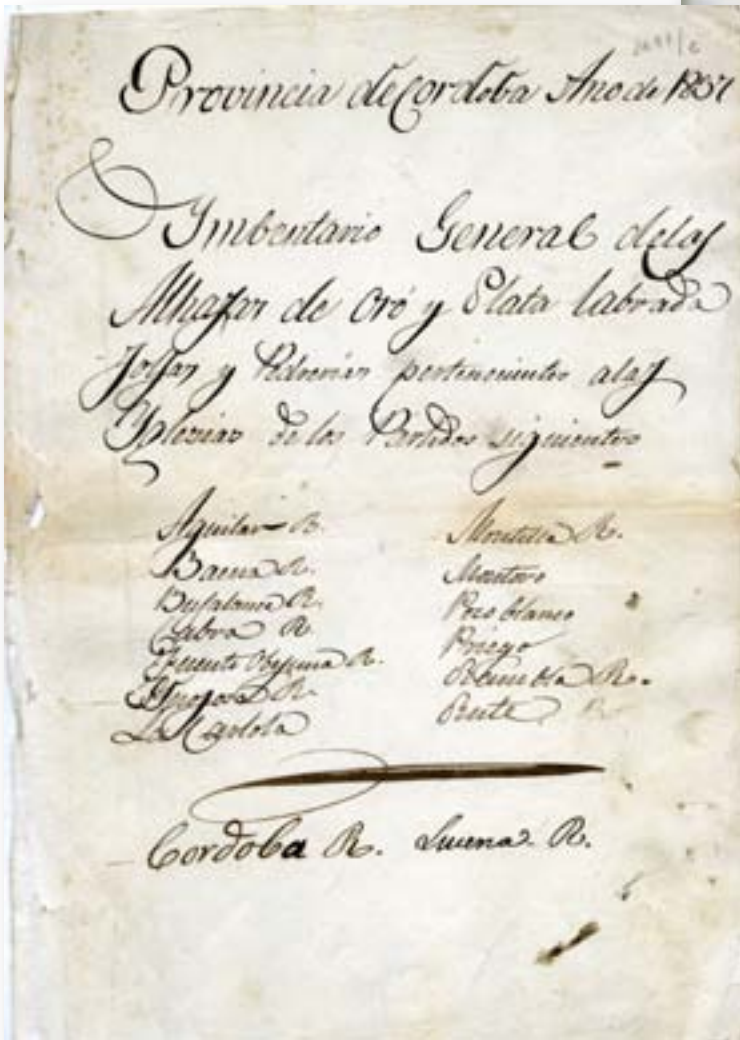 Provincia de Cordoba Año de 1837
Ymbentario General delas
Alhajas de Oro y Plata labrada
Joyas y Pedrerias pertenecientes alas
Yglesias de los Partidos siguientes
Aguilar R.
Baena R.
Bujalance R.
Cabra R.
Fuente Obejuna R.
Hinojosa R.
La Carlota
Montilla R.
Montoro
Pozoblanco
Priego
Rambla R.
Rute R
Cordoba R. Lucena R.